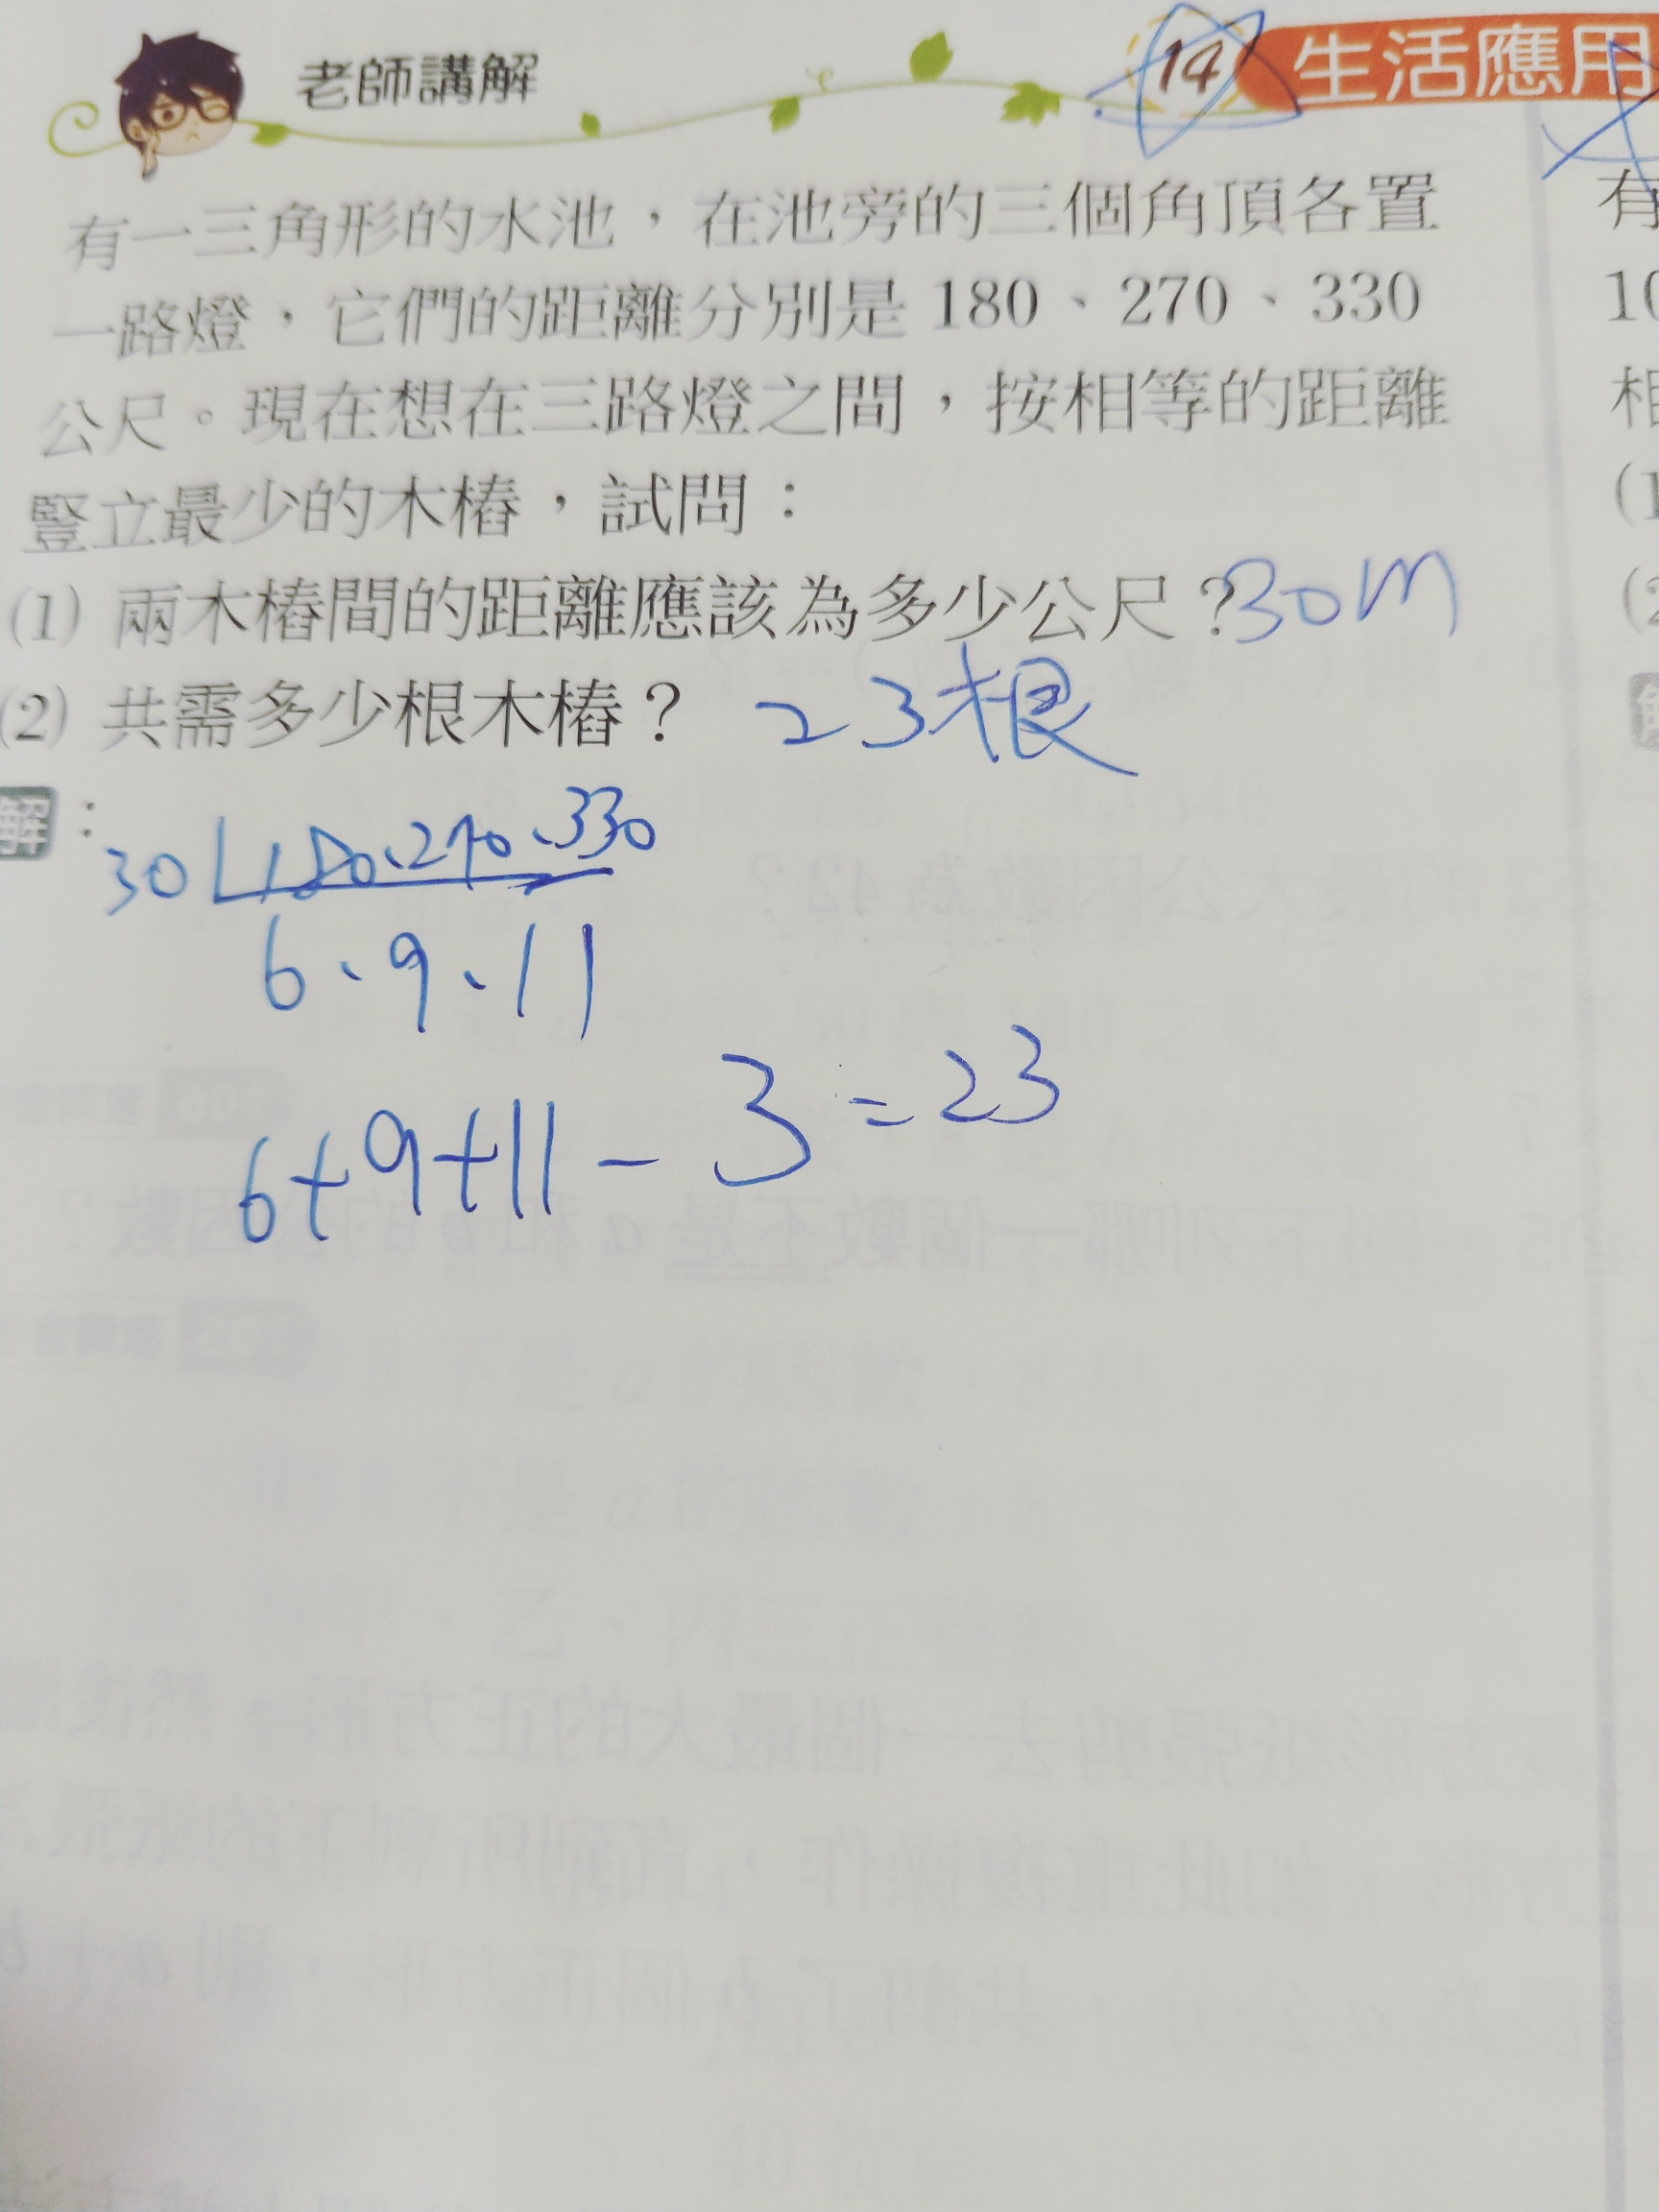 老師講解
14 生活應用
有一三角形的水池，在池旁的三個角頂各置
一路燈，它們的距離分別是 180、270、330
公尺。現在想在三路燈之間，按相等的距離
豎立最少的木樁，試問：
(1) 兩木樁間的距離應該為多少公尺？30M
(2) 共需多少根木樁？ 23根
解：
30 180、270、330
6、9、11
6+9+11-3=23
有
10
相
(1
(2